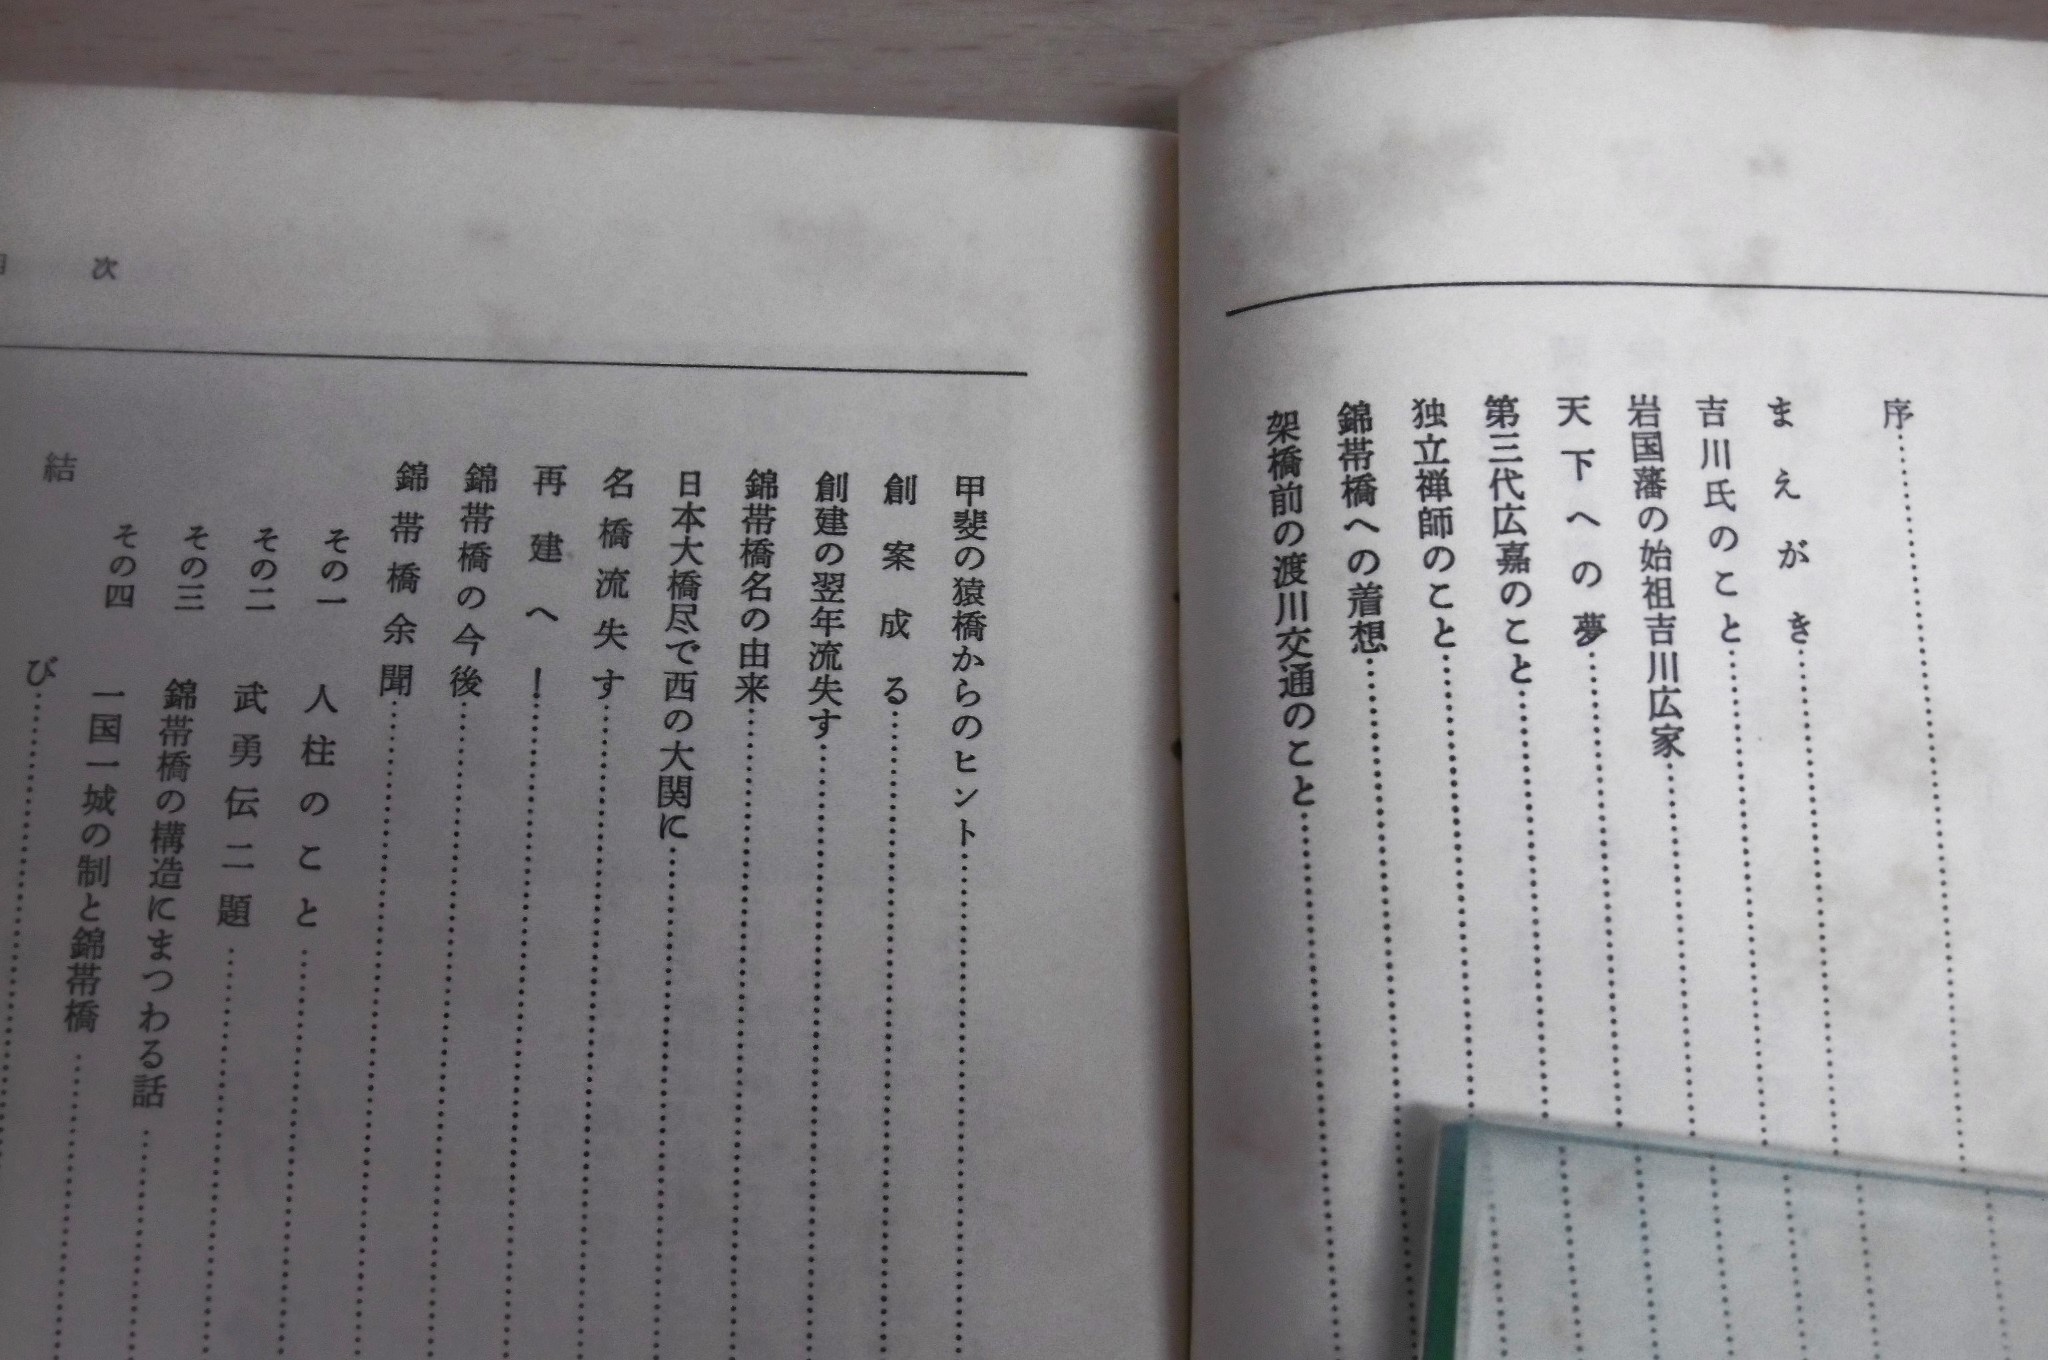 序
まえがき
吉川氏のこと
岩国藩の始祖吉川広家
天下への夢
第三代広嘉のこと
独立禅師のこと
錦帯橋への着想
架橋前の渡川交通のこと
目次
甲斐の猿橋からのヒント
創案成る
創建の翌年流失す
錦帯橋名の由来
日本大橋尽で西の大関に
名橋流失す
再建へ！
錦帯橋の今後
錦帯橋余聞
その一 人柱のこと
その二 武勇伝二題
その三 錦帯橋の構造にまつわる話
その四 一国一城の制と錦帯橋
結び